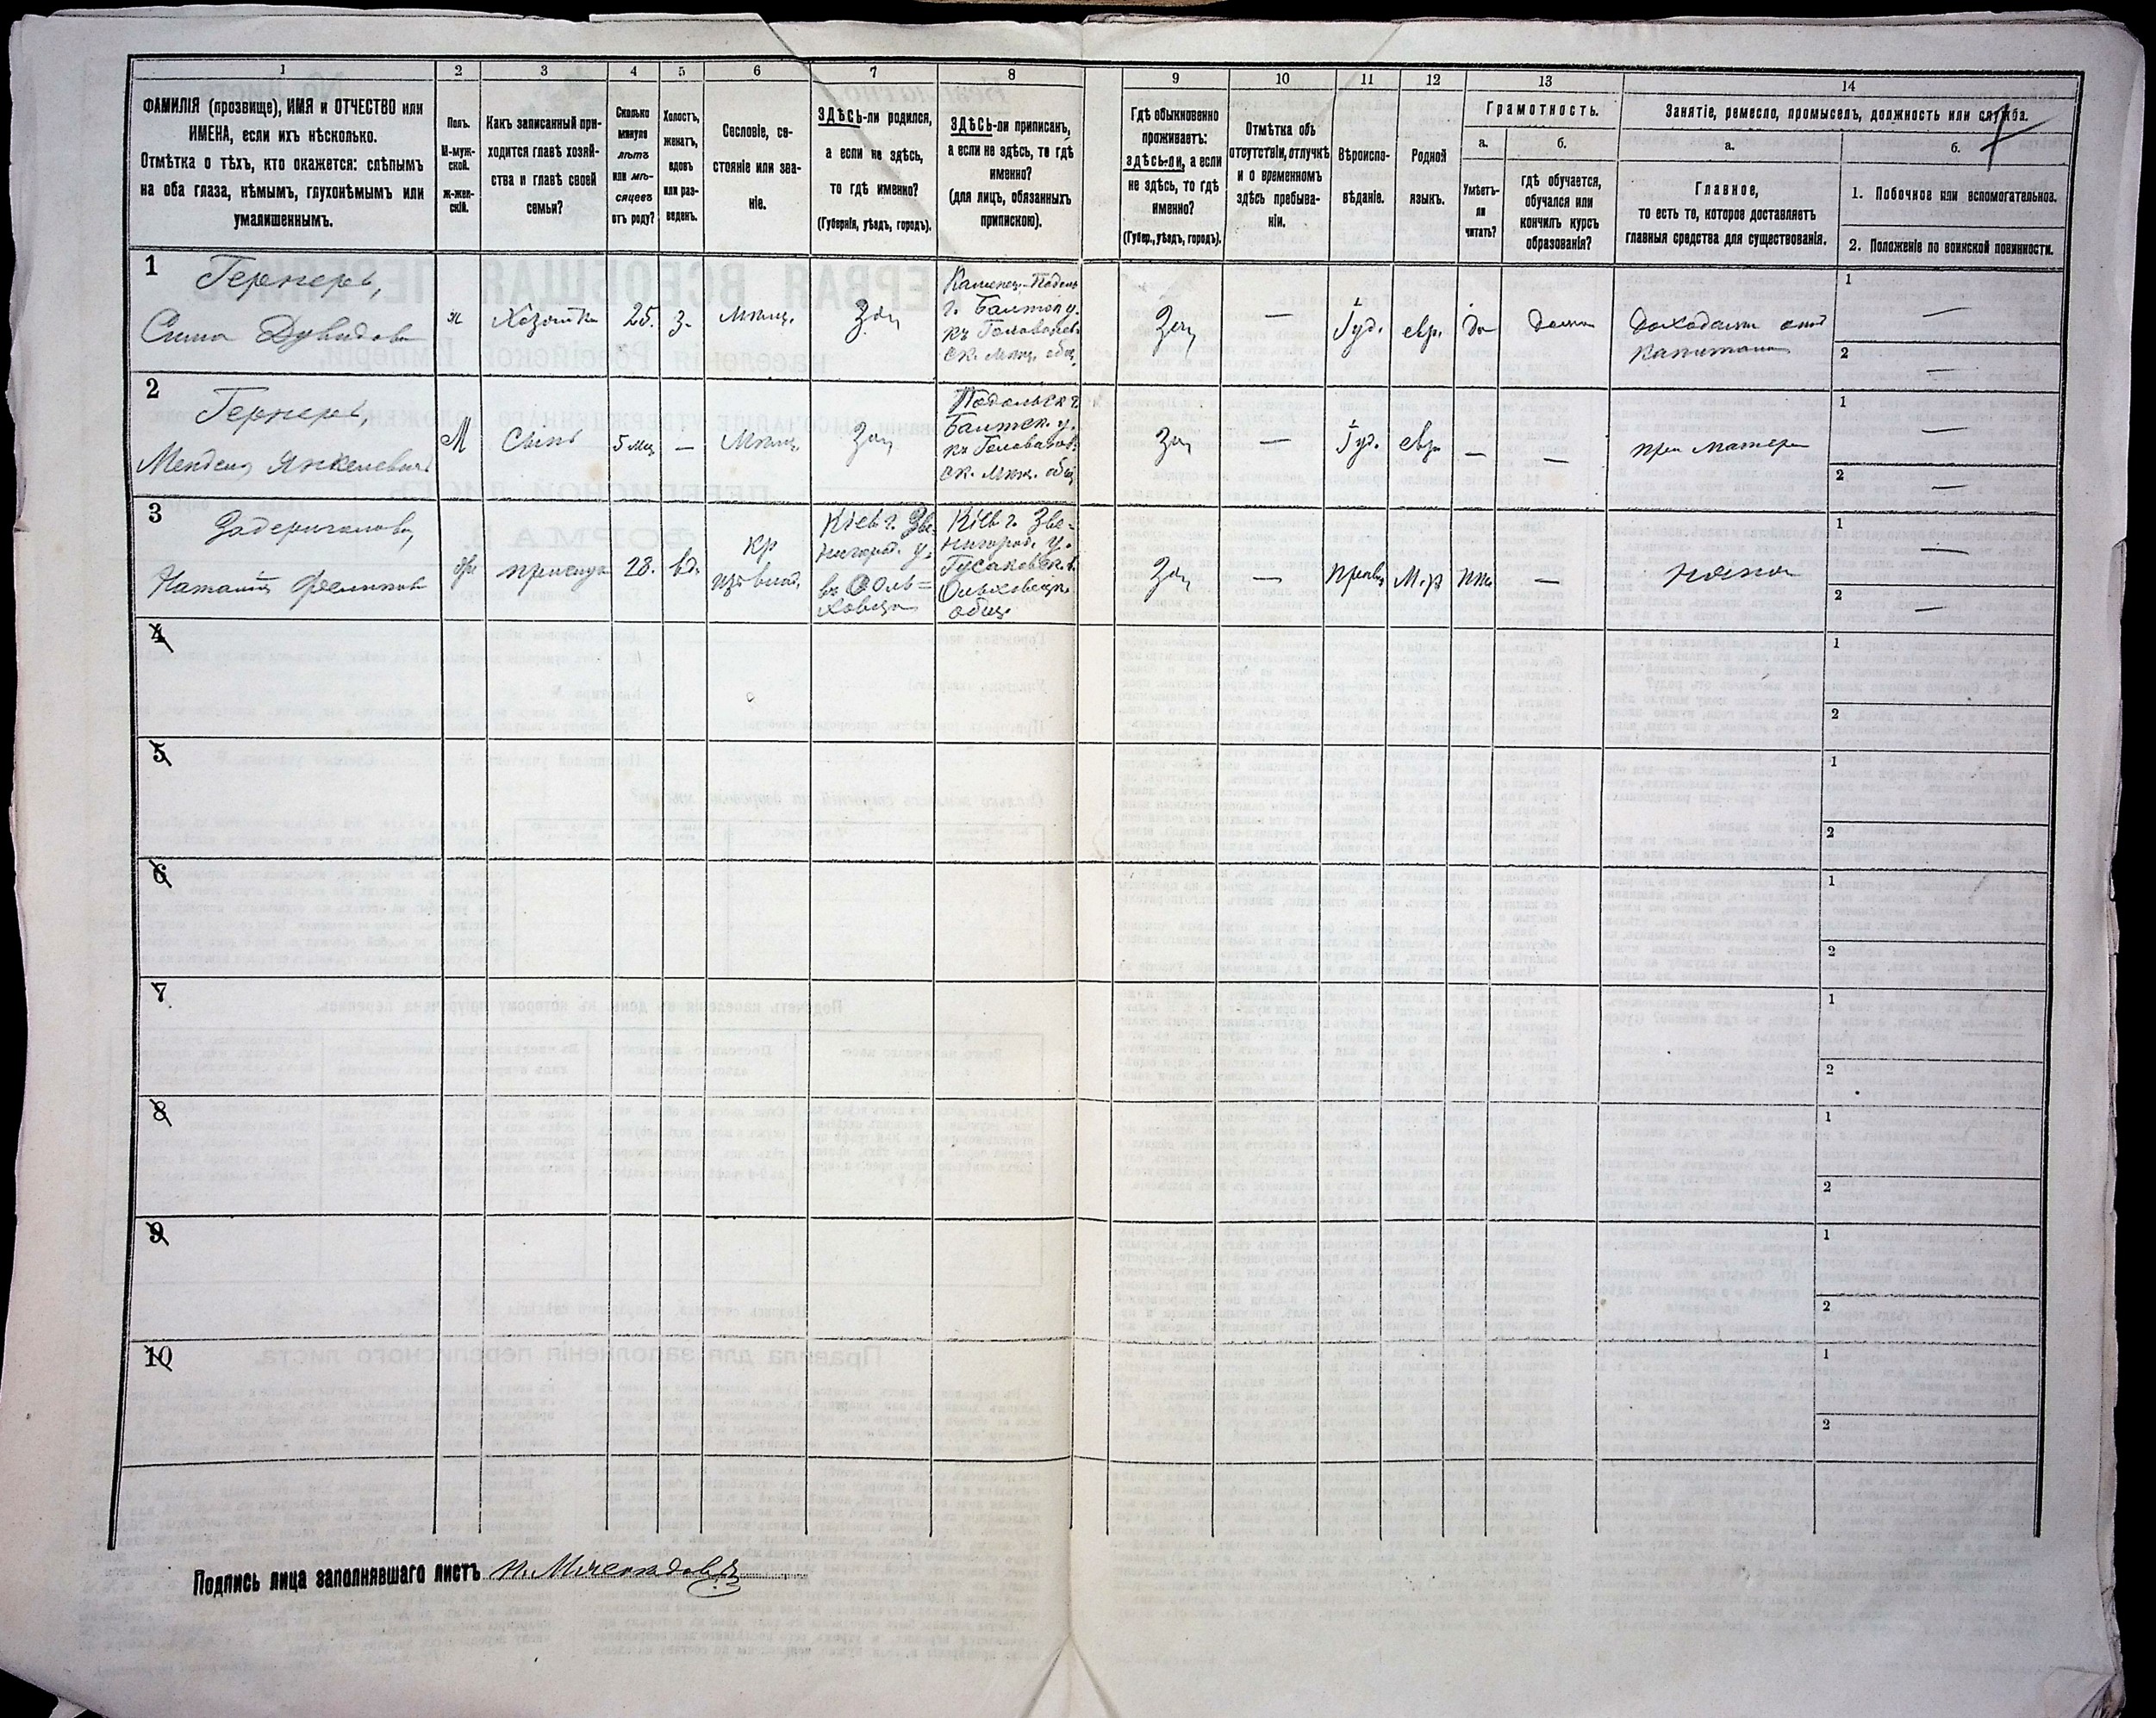 1 2 3 4 5 6 7 8 9 10 11 12 13 14
ФАМИЛІЯ (прозвище), ИМЯ и ОТЧЕСТВО или
ИМЕНА, если ихъ нѣсколько.
Отмѣтка о тѣхъ, кто окажется: слѣпымъ
на оба глаза, нѣмымъ, глухонѣмымъ или
умалишеннымъ.
Полъ.
М-муж-
ской.
ж-жен-
скій.
Какъ записанный при-
ходится главѣ хозяй-
ства и главѣ своей
семьи?
Сколько
минуло
лѣтъ
или мѣ-
сяцевъ
отъ роду?
Холостъ,
женатъ,
вдовъ
или раз-
веденъ.
Сословіе, со-
стояніе или зва-
ніе.
ЗДѢСЬ-ли родился,
а если не здѣсь,
то гдѣ именно?
(Губернія, уѣздъ, городъ).
ЗДѢСЬ-ли приписанъ,
а если не здѣсь, то гдѣ
именно?
(для лицъ, обязанныхъ
припискою).
Гдѣ обыкновенно
проживаетъ:
здѣсь-ли, а если
не здѣсь, то гдѣ
именно?
(Губер., уѣздъ, городъ).
Отмѣтка объ
отсутствіи, отлучкѣ
и о временномъ
здѣсь пребыва-
ніи.
Вѣроиспо-
вѣданіе.
Родной
языкъ.
Грамотность.
а.
Умѣетъ-
ли
читать?
б.
гдѣ обучается,
обучался или
кончилъ курсъ
образованія?
Занятіе, ремесло, промыселъ, должность или служба.
а.
Главное,
то есть то, которое доставляетъ
главныя средства для существованія.
б.
1. Побочное или вспомогательное.
2. Положеніе по воинской повинности.
1
Герперъ,
ж Хозяйка 25. З. Мѣщ.
Каменец-Подол
г. Балтск у.
къ Головано
ск. Мѣщ. общ.
— Іуд. евр. да дома
Доходами отъ
капитала
1 —
2 —
2
Герперъ,
Мендель Янкелевичъ
М Сынъ 5 мѣс — Мѣщ.
Подольск г.
Балтск. у.
къ Голованов
ск. Мѣщ. общ
— Іуд. евр — —
при матери
1 —
2 —
3
Наталія
прислуга 28. вд.
кр
Кіев г. Зве-
нигород. у.
Кіев г. Зве-
нигород. у.
Гусаковск в.
Ольховецк.
общ.
— правос М.р нѣт —
няня
1 —
2 —
4
1
2
5
1
2
6
1
2
7
1
2
8
1
2
9
1
2
10
1
2
Подпись лица заполнявшаго листъ